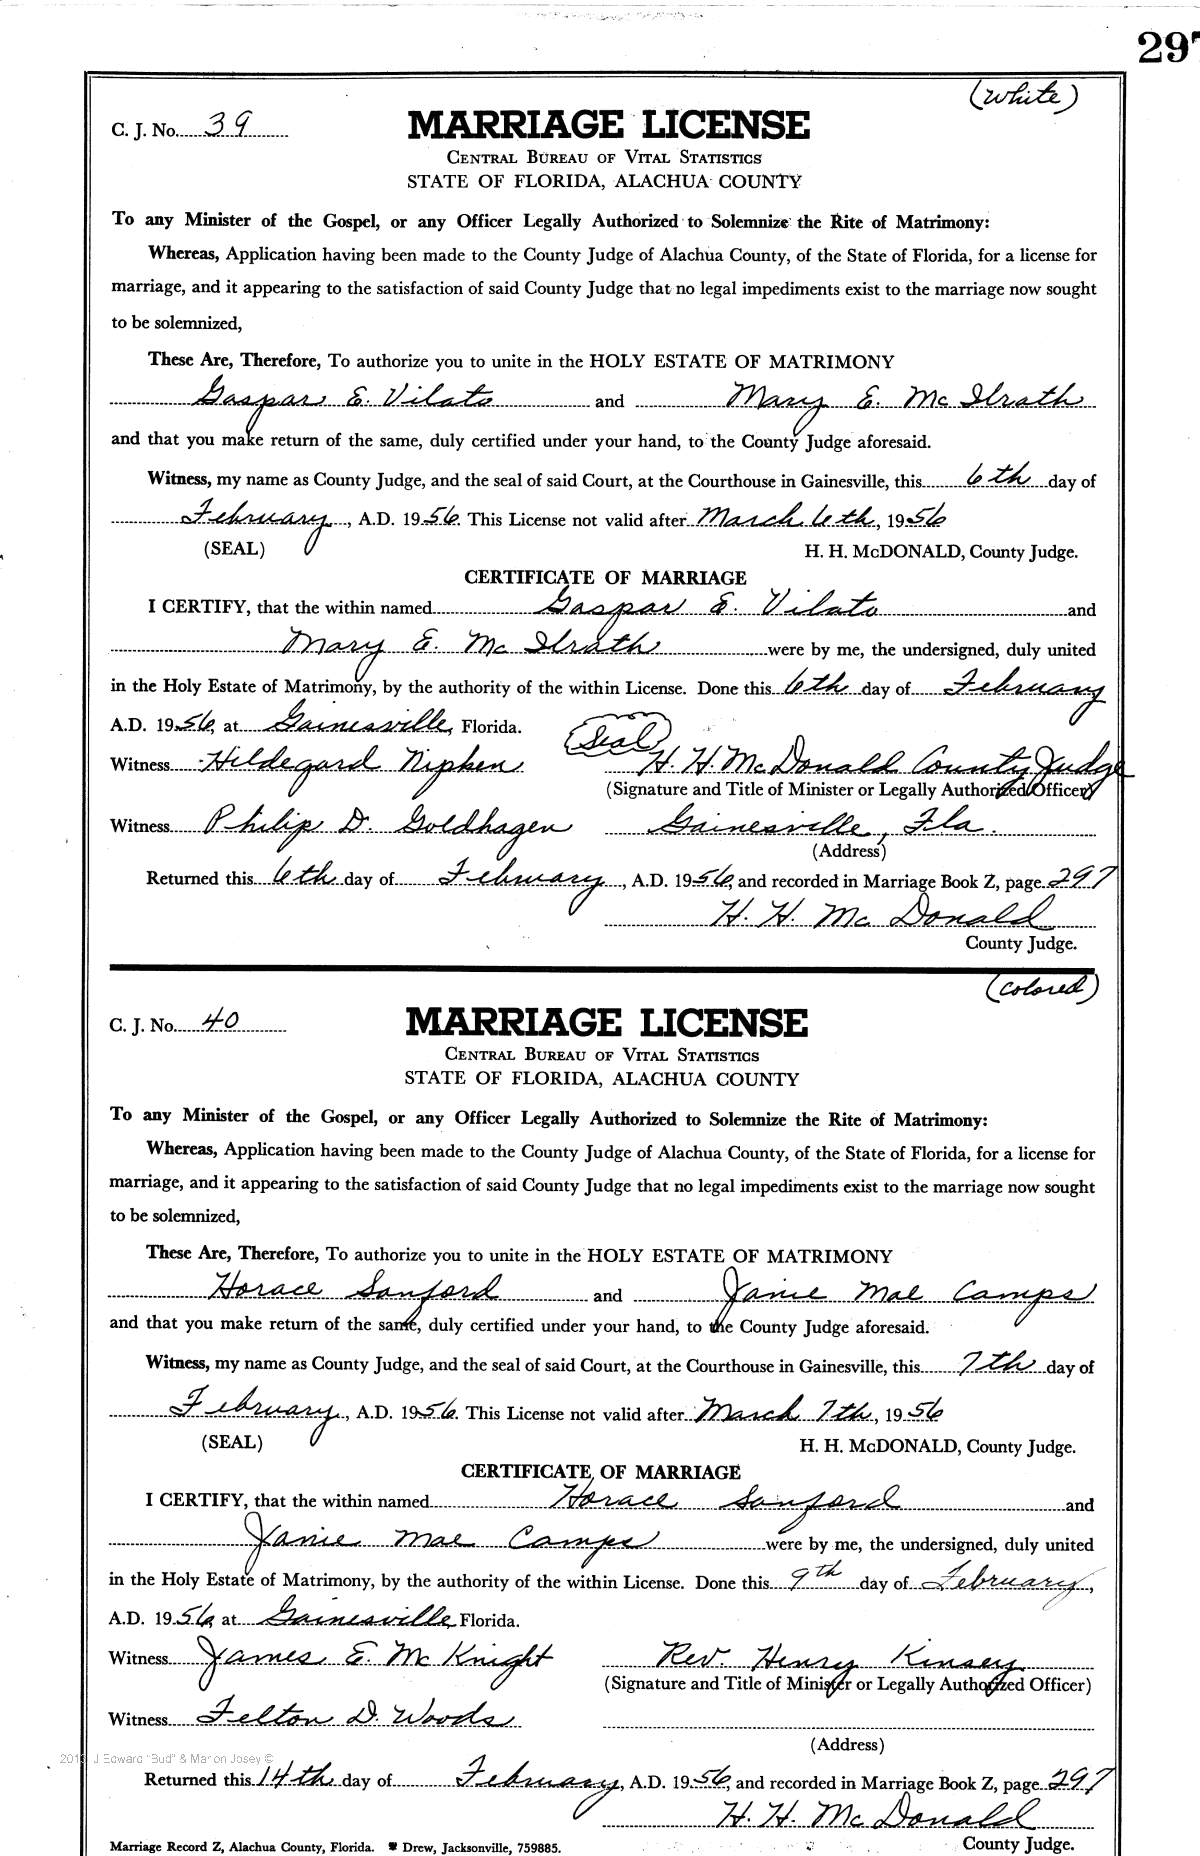 297
(White)
C. J. No. 39
MARRIAGE LICENSE
CENTRAL BUREAU OF VITAL STATISTICS
STATE OF FLORIDA, ALACHUA COUNTY
To any Minister of the Gospel, or any Officer Legally Authorized to Solemnize the Rite of Matrimony:
Whereas, Application having been made to the County Judge of Alachua County, of the State of Florida, for a license for
marriage, and it appearing to the satisfaction of said County Judge that no legal impediments exist to the marriage now sought
to be solemnized,
These Are, Therefore, To authorize you to unite in the HOLY ESTATE OF MATRIMONY
Gaspar E. Vilato and Mary E. McIlrath
and that you make return of the same, duly certified under your hand, to the County Judge aforesaid.
Witness, my name as County Judge, and the seal of said Court, at the Courthouse in Gainesville, this 6th day of
February, A.D. 1956. This License not valid after March 6th, 1956
(SEAL) H. H. McDONALD, County Judge.
CERTIFICATE OF MARRIAGE
I CERTIFY, that the within named Gaspar E. Vilato and
Mary E. McIlrath were by me, the undersigned, duly united
in the Holy Estate of Matrimony, by the authority of the within License. Done this 6th day of February
A.D. 1956, at Gainesville, Florida. Seal
Witness Hildegard Nipken H. H. McDonald County Judge
(Signature and Title of Minister or Legally Authorized Officer)
Witness Philip D. Goldhagen Gainesville, Fla.
(Address)
Returned this 6th day of February, A.D. 1956, and recorded in Marriage Book Z, page 297
H. H. McDonald
County Judge.
(Colored)
C. J. No. 40
MARRIAGE LICENSE
CENTRAL BUREAU OF VITAL STATISTICS
STATE OF FLORIDA, ALACHUA COUNTY
To any Minister of the Gospel, or any Officer Legally Authorized to Solemnize the Rite of Matrimony:
Whereas, Application having been made to the County Judge of Alachua County, of the State of Florida, for a license for
marriage, and it appearing to the satisfaction of said County Judge that no legal impediments exist to the marriage now sought
to be solemnized,
These Are, Therefore, To authorize you to unite in the HOLY ESTATE OF MATRIMONY
Horace Sanford and Janie Mae Camps
and that you make return of the same, duly certified under your hand, to the County Judge aforesaid.
Witness, my name as County Judge, and the seal of said Court, at the Courthouse in Gainesville, this 7th day of
February, A.D. 1956. This License not valid after March 7th, 1956
(SEAL) H. H. McDONALD, County Judge.
CERTIFICATE OF MARRIAGE
I CERTIFY, that the within named Horace Sanford and
Janie Mae Camps were by me, the undersigned, duly united
in the Holy Estate of Matrimony, by the authority of the within License. Done this 9th day of February,
A.D. 1956, at Gainesville Florida.
Witness James E. McKnight Rev. Henry Kinsey
(Signature and Title of Minister or Legally Authorized Officer)
Witness Felton D. Woods
(Address)
J Edward "Bud" & Marion Josey ©
Returned this 14th day of February, A.D. 1956, and recorded in Marriage Book Z, page 297
H. H. McDonald
County Judge.
Marriage Record Z, Alachua County, Florida. Drew, Jacksonville, 759885.